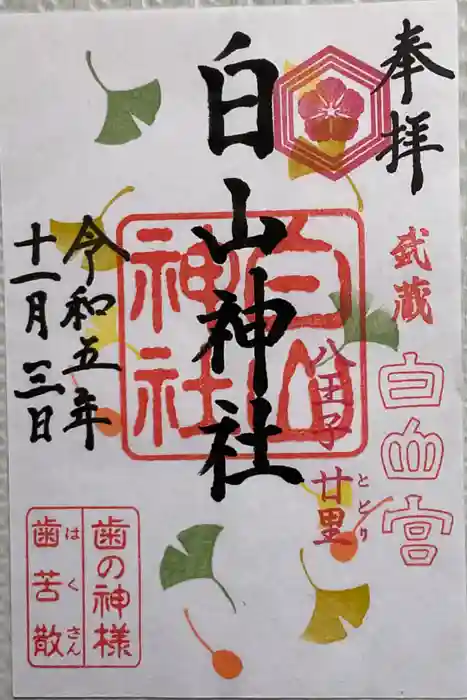 奉拝
武蔵
白山宮
八王子 廿里
とどり
白山神社
白山神社
令和五年
十一月三日
歯の神様
歯苦散
はくさん